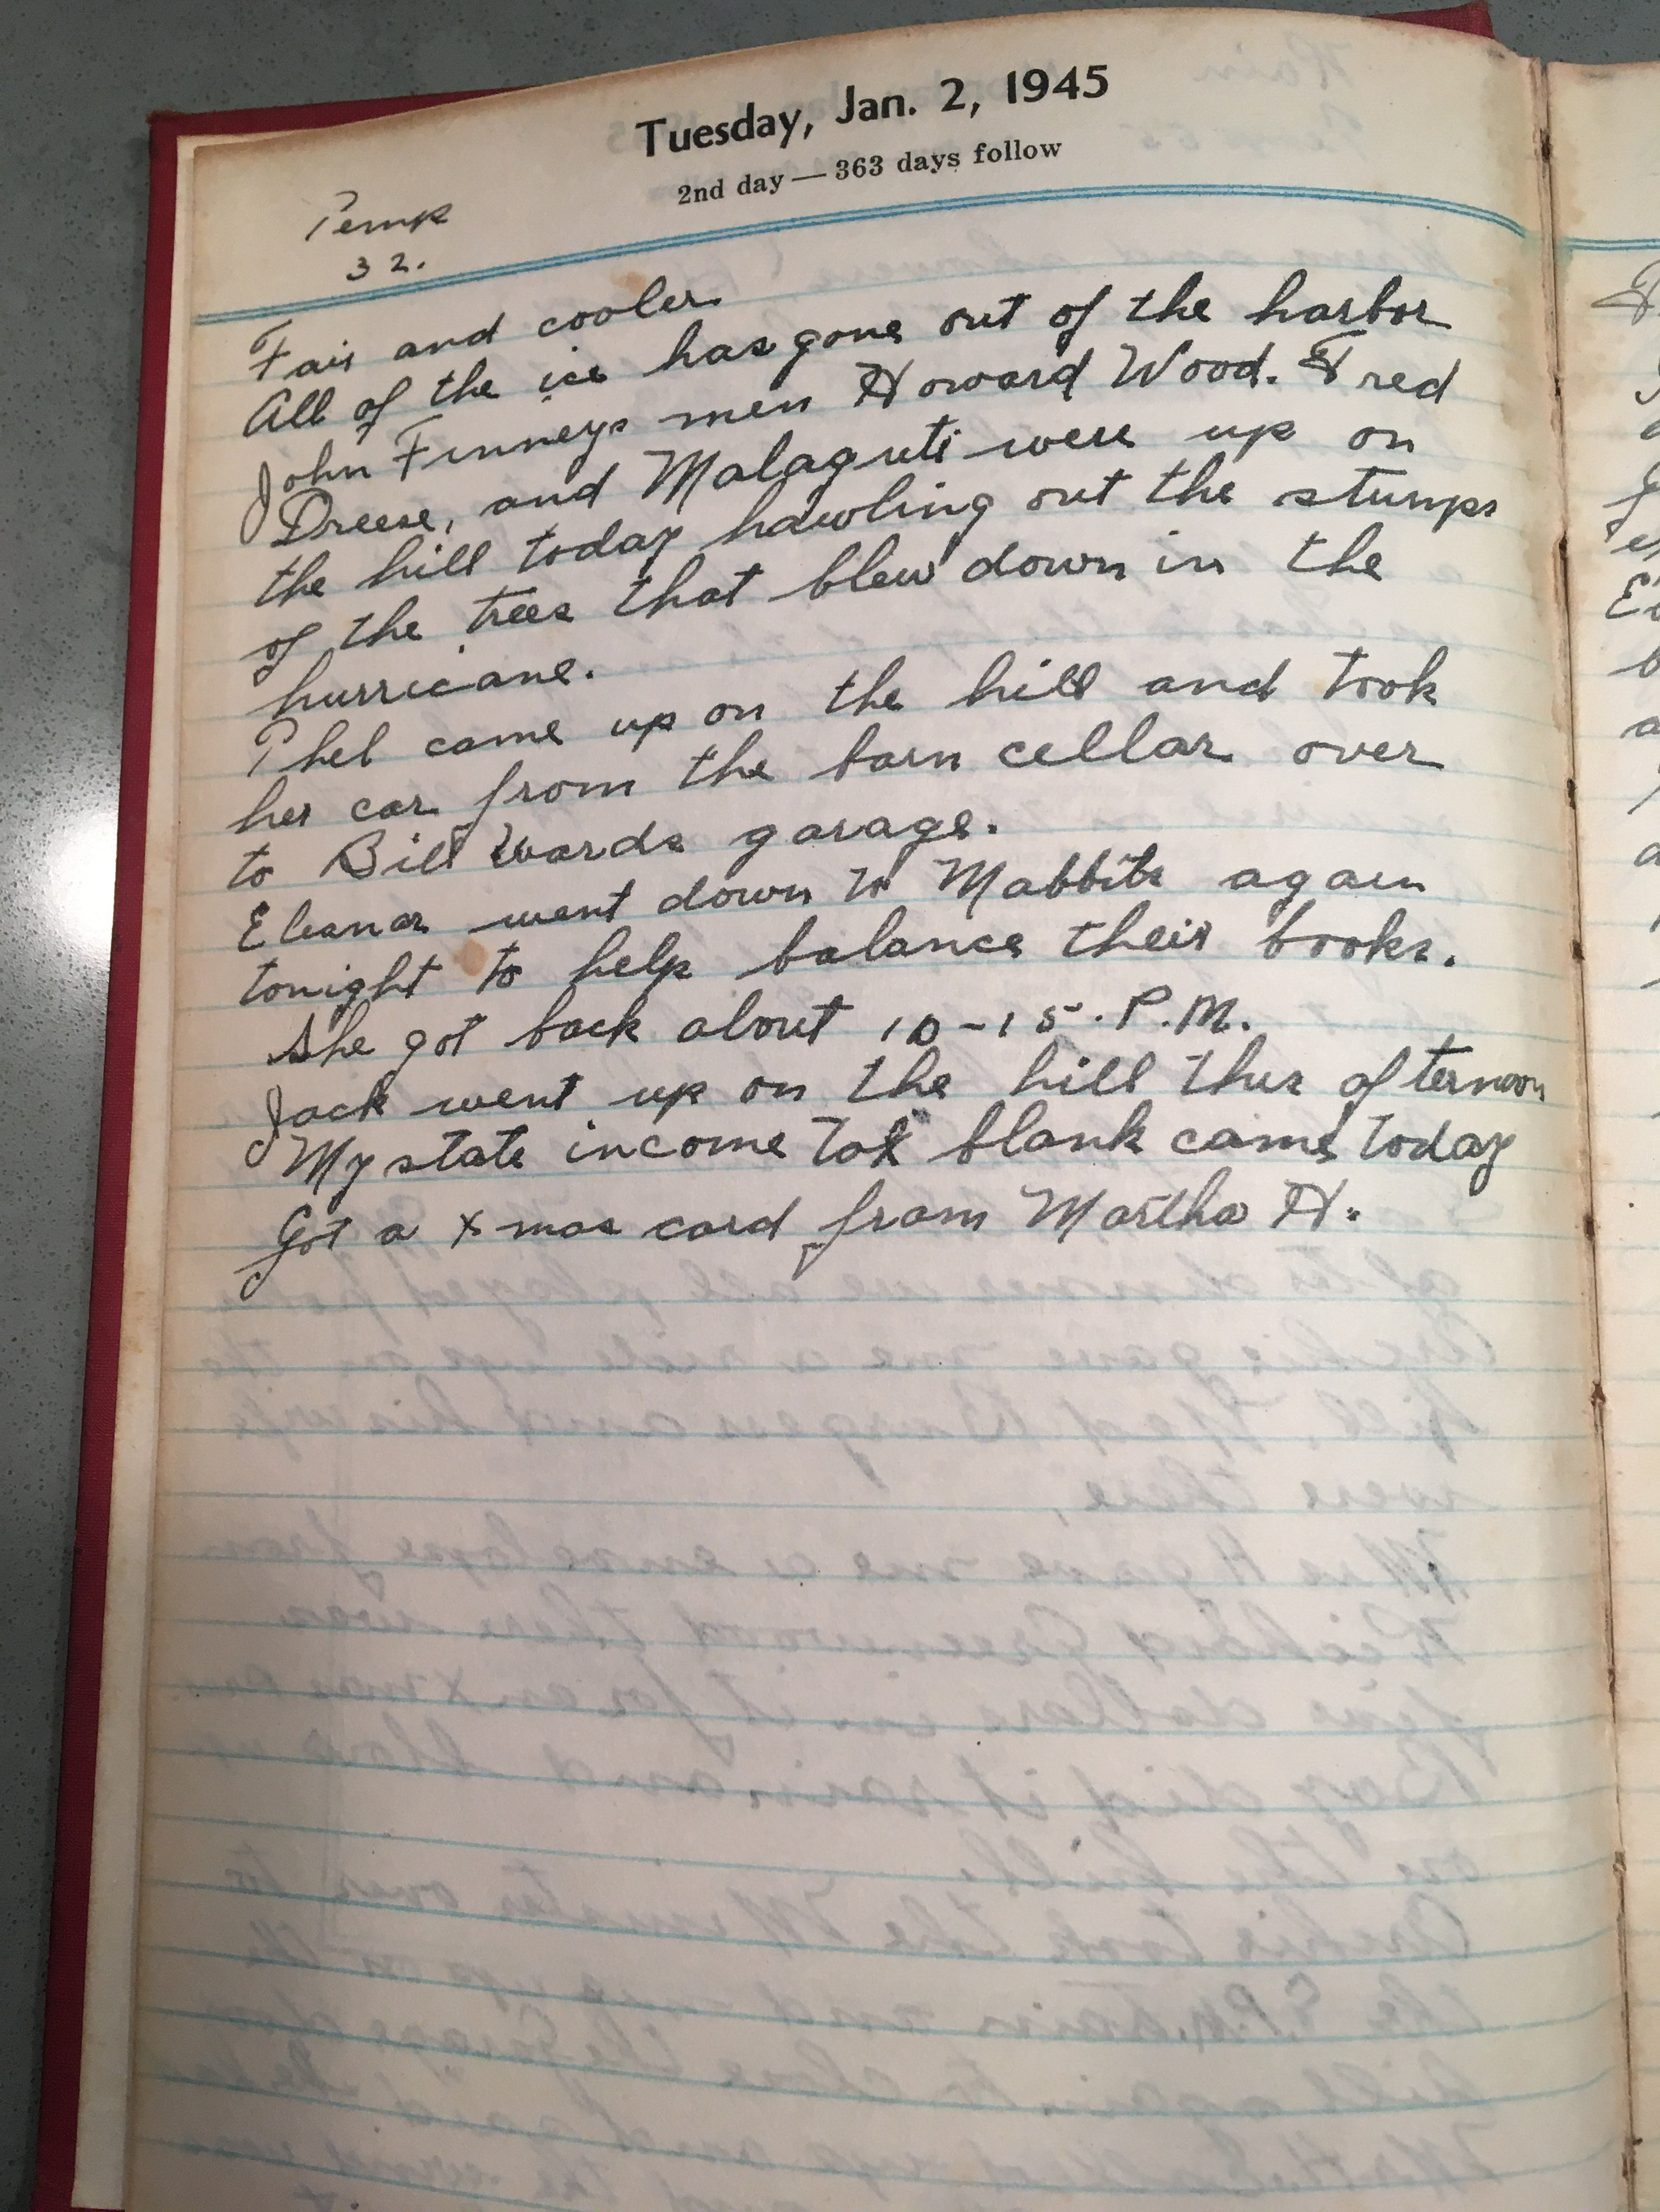 Tuesday, Jan. 2, 1945
2nd day — 363 days follow
Temp
32.
Fair and cooler
All of the ice has gone out of the harbor
John Finneys men Howard Wood. Fred
Dreese, and Malaguti were up on
the hill today hawling out the stumps
of the trees that blew down in the
hurricane.
Phel came up on the hill and took
her car from the barn cellar over
to Bill Wards garage.
Eleanor went down to Mabbits again
tonight to help balance their books.
She got back about 10-15. P.M.
Jack went up on the hill this afternoon
My state income tax blank came today
Got a xmas card from Martha H.